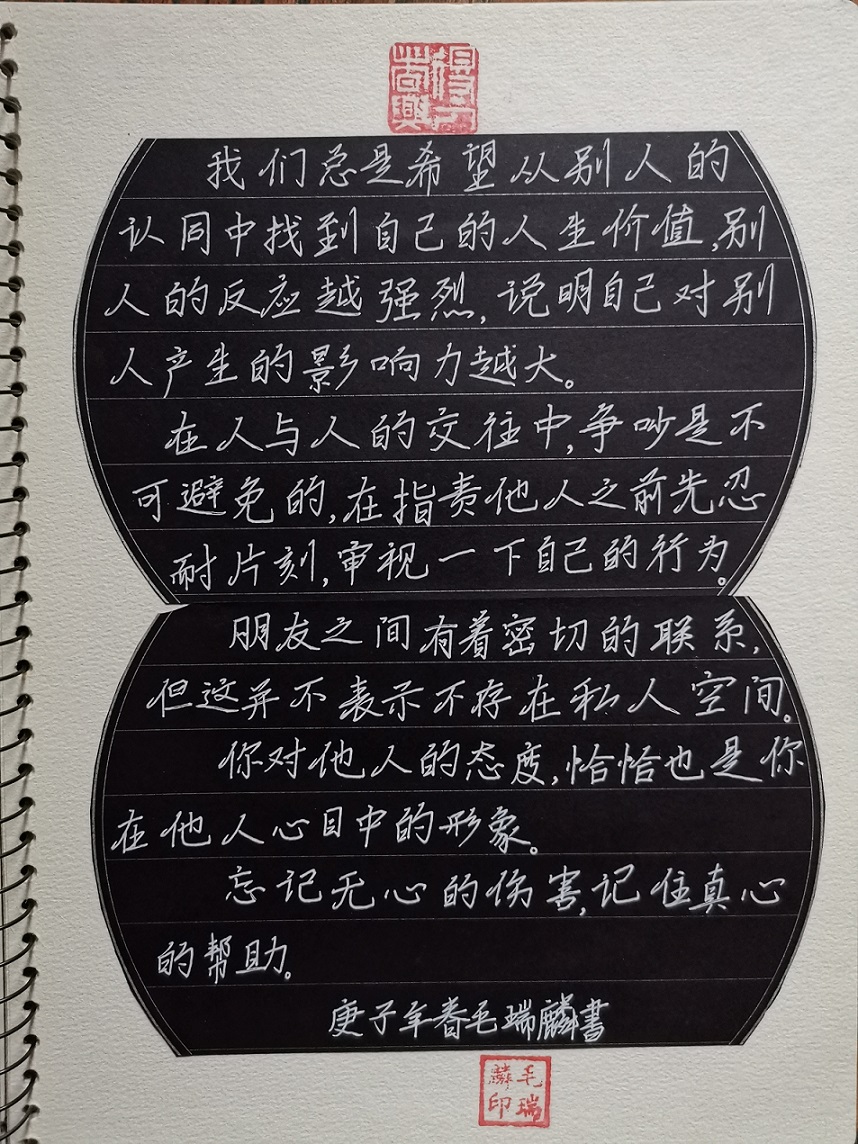 我们总是希望从别人的
认同中找到自己的人生价值,别
人的反应越强烈,说明自己对别
人产生的影响力越大。
在人与人的交往中,争吵是不
可避免的,在指责他人之前先忍
耐片刻,审视一下自己的行为。
朋友之间有着密切的联系,
但这并不表示不存在私人空间。
你对他人的态度,恰恰也是你
在他人心目中的形象。
忘记无心的伤害,记住真心
的帮助。
庚子年春毛瑞麟书
毛瑞
麟印